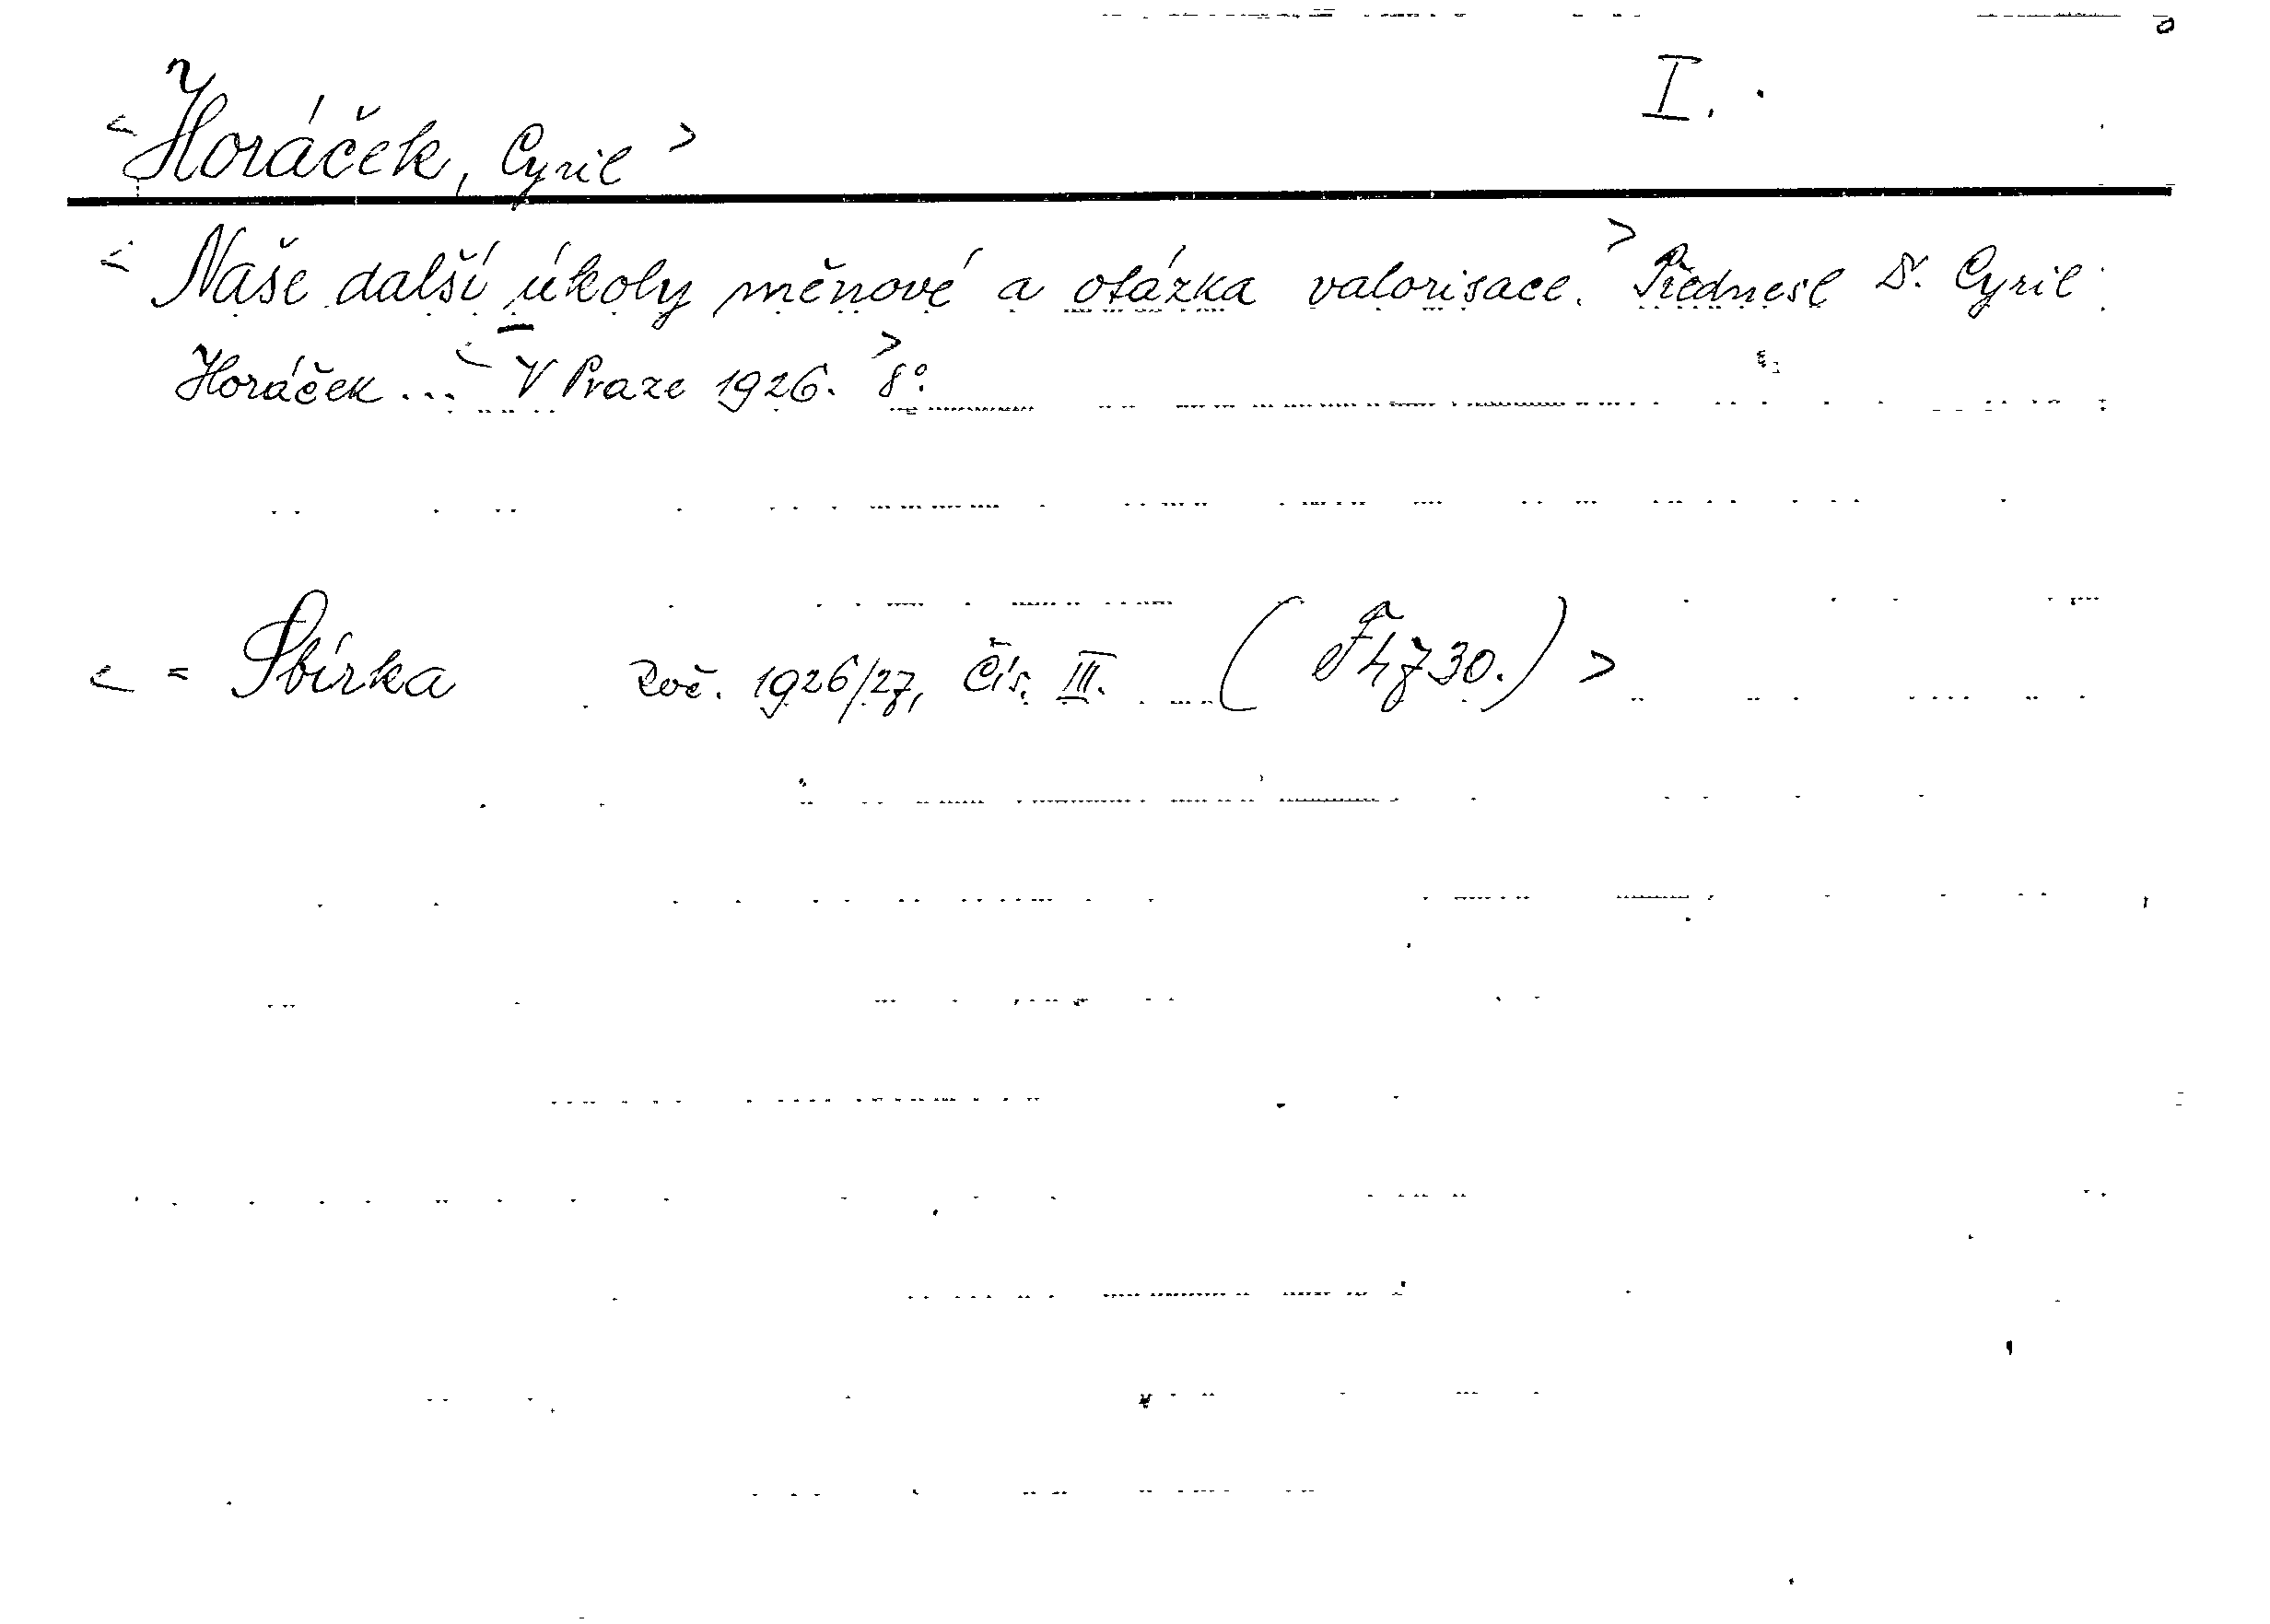 I.
<Horáček, Cyril>
<Naše další úkoly měnové a otázka valorisace.> Přednesl Dr. Cyril
Horáček ... <V Praze 1926.> 8°.
<= Sbírka roč. 1926/27, Čís. III. ( )>